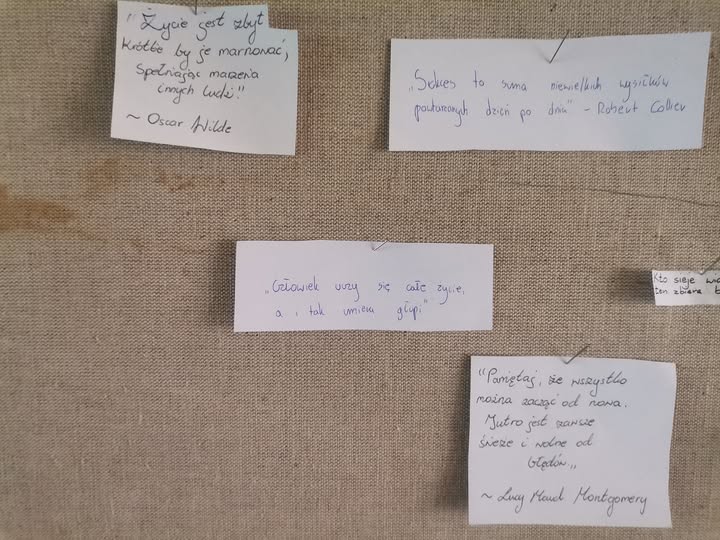 "Życie jest zbyt
krótkie by je marnować,
spełniając marzenia
innych ludzi."
~ Oscar Wilde
„Sukces to suma niewielkich wysiłków
powtarzanych dzień po dniu" - Robert Collier
„Człowiek uczy się całe życie,
a i tak umiera głupi"
Kto sieje wia
ten zbiera b
"Pamiętaj, że wszystko
można zacząć od nowa.
Jutro jest zawsze
świeże i wolne od
błędów„
~ Lucy Maud Montgomery